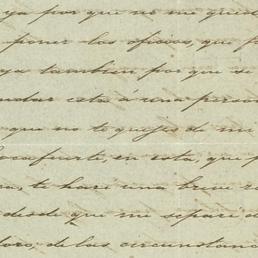 ya por que no me qued
poner los oficios, que p
ya tambien por que si
mandar esta á una person
que no te quejes de mi
Rocafuerte, en esta, que p
te haré una breve re
desde que me separé d
loro, de las circunstanc